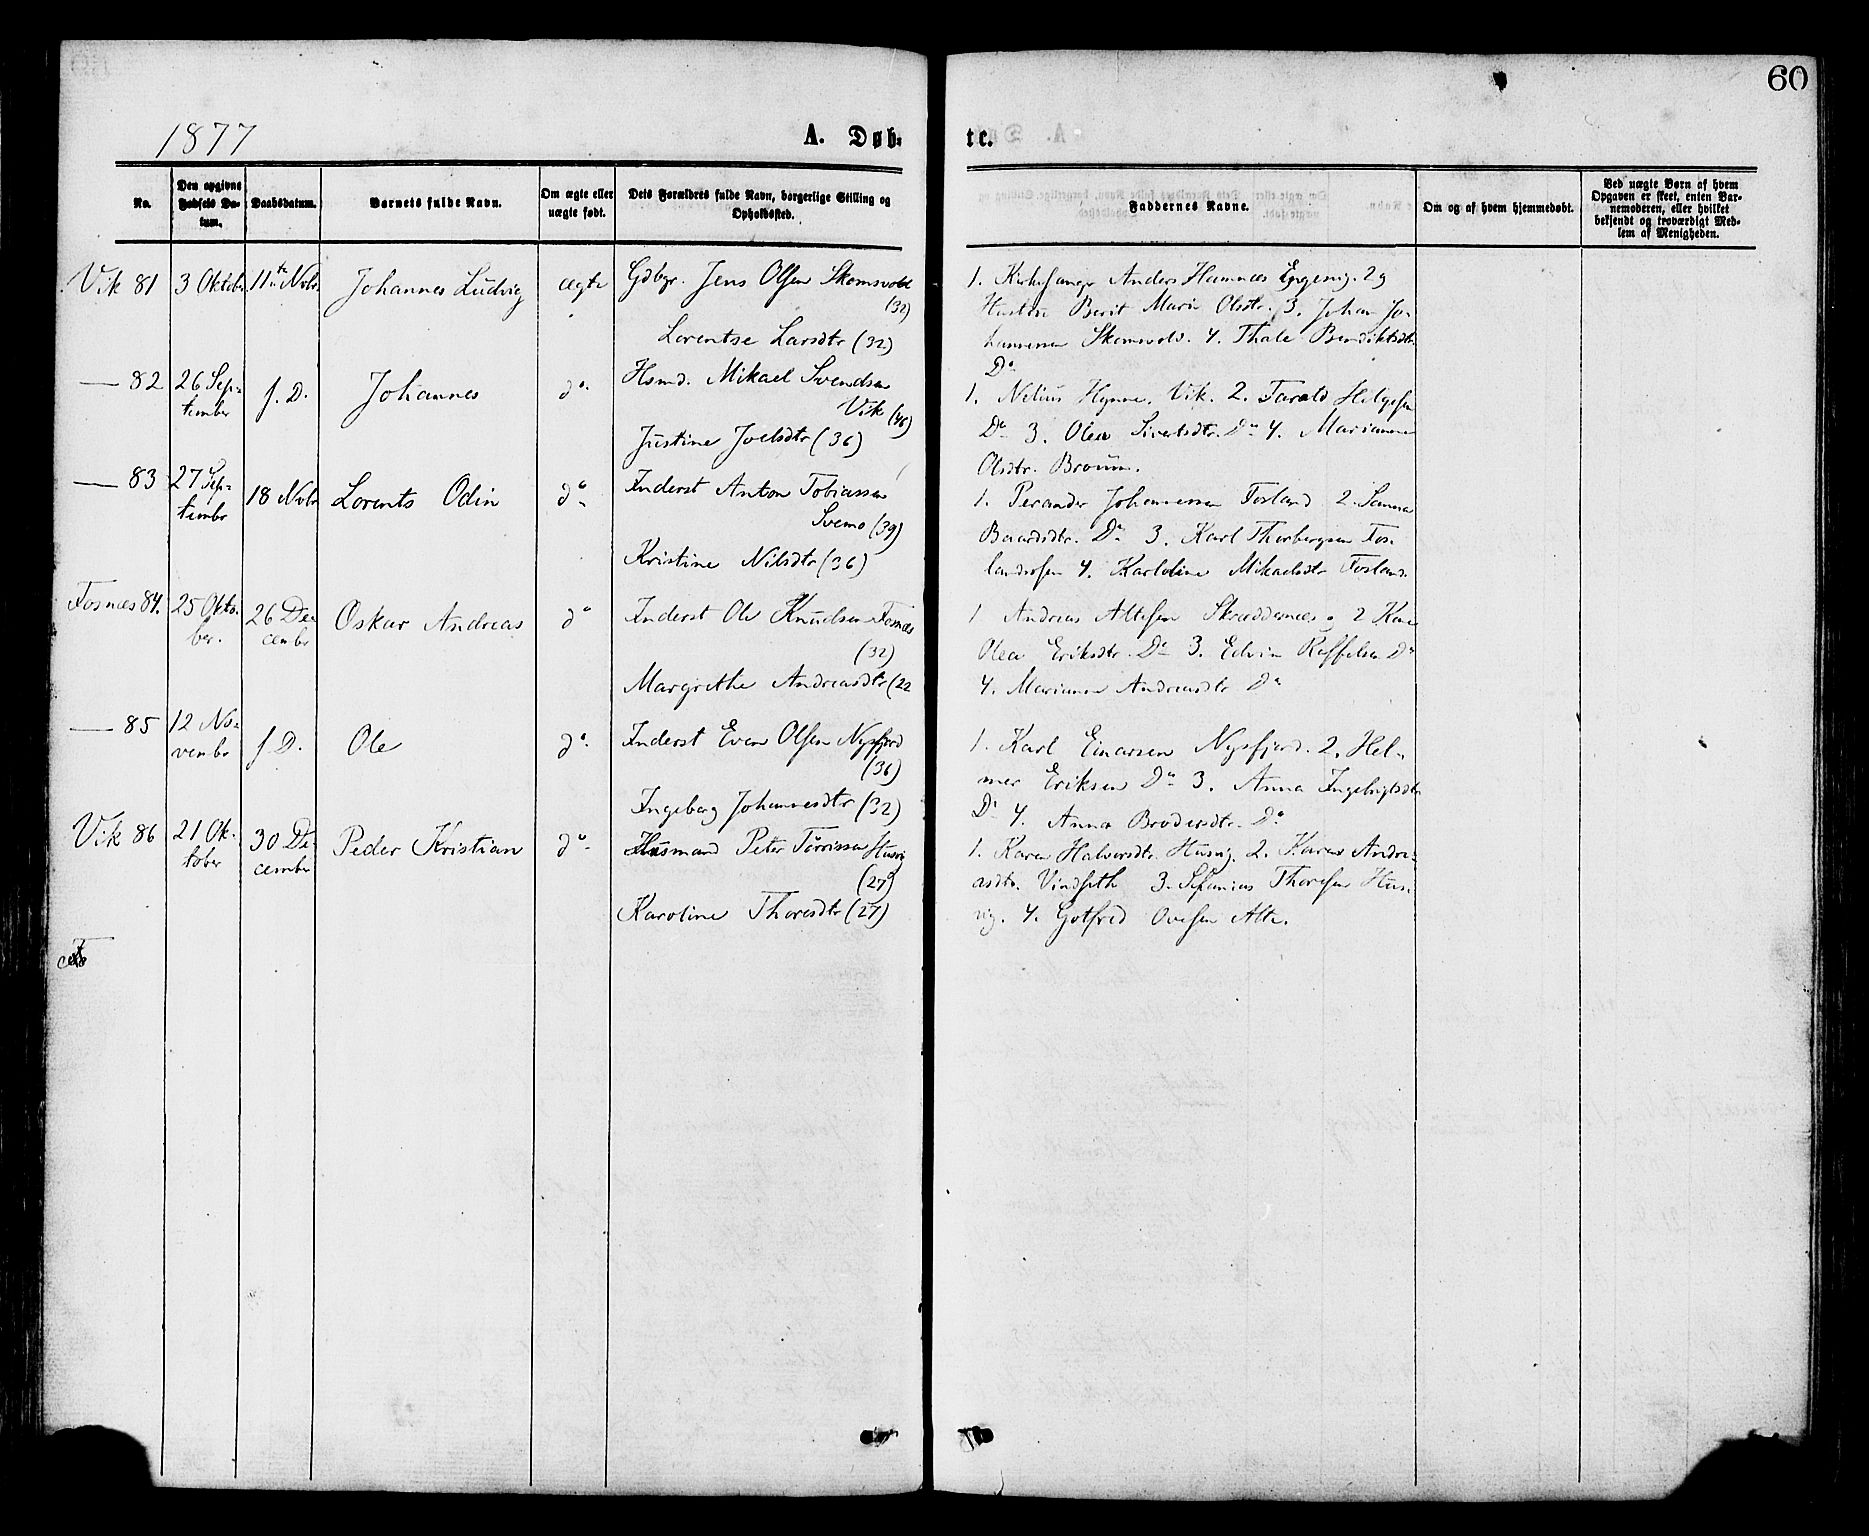 60
1877
A. Døb-
te.
No.
Den opgivne Fødsels Da-tum.
Daabsdatum.
Barnets fulde Navn.
Om ægte eller uægte født.
Dets Forældres fulde Navn, borgerlige Stilling og Opholdssted.
Faddernes Navne.
Om og af hvem hjemmedøbt.
Ved uægte Børn af hvem Opgaven er skeet, enten Bar-nemoderen, eller hvilket bekjendt og troværdigt Med-lem af Menigheden.
Vik 81
3 Oktobr
11te Novbr
Johannes Ludvig
ægte
Gdbgr. Jens Olsen Skomsvold
(32)
Lorentse Larsdtr (32)
1. Kirkesanger Anders Hamnes 2 og
Hustru Berit Marie Olsdtr. 3. Johan Jo-
hannessen Skomsvold. 4. Thale Bendiktsdtr
Do
— 82
26 Sep-
tember
s. D.
Johannes
do.
Hsmd. Mikael Svendsen
Vik (46)
Justine Joelsdtr (36)
1. Nilius Hynne, Vik. 2. Tarald Helgesen
Do 3. Olea Sivertsdtr. Do 4. Marianne
Olsdtr. Brouun.
— 83
27 Sep-
tembr
18 Novbr
Lorents Odin
do
Inderst Anton Tobiassen
Svemo (39)
Kristine Nilsdtr (36)
1. Perander Johannessen Fosland 2. Sanna
Baardsdtr. Do 3. Karl Thorbergsen Fos-
landsosen 4. Karoline Mikaelsdtr Fosland.
Fosnæs 84.
25 Okto-
ber.
26 De-
cembr
Oskar Andreas
do
Inderst Ole Knudsen Fosnæs
(32)
Margrethe Andreasdtr (22
1 Andreas Altesen Skræddernæs og 2 Kone
Olea Eriksdtr. Do 3. Edvin Roffelsen Do
4. Marianne Andreasdtr Do
— 85
12 No-
venbr
s. D.
Ole
do.
Inderst Even Olsen Nysfjord
(36)
Ingeborg Johannesdtr (32)
1. Karl Einarsen Nysfjord. 2. Hel-
mer Eriksen Do 3. Anna Ingebrigtsdtr
Do 4. Anna Brodersdtr. Do
Vik 86
21 Ok-
tober
30 De-
cember
Peder Kristian
do
Husmand Peter Tørrissen Husvig
(27)
Karoline Thoresdtr (27)
1. Karen Halversdtr. Husvig. 2. Karen Andre-
asdtr. Vindseth 3. Sefanias Thoresen Hus-
vig. 4. Gotfred Ovesen Alte.